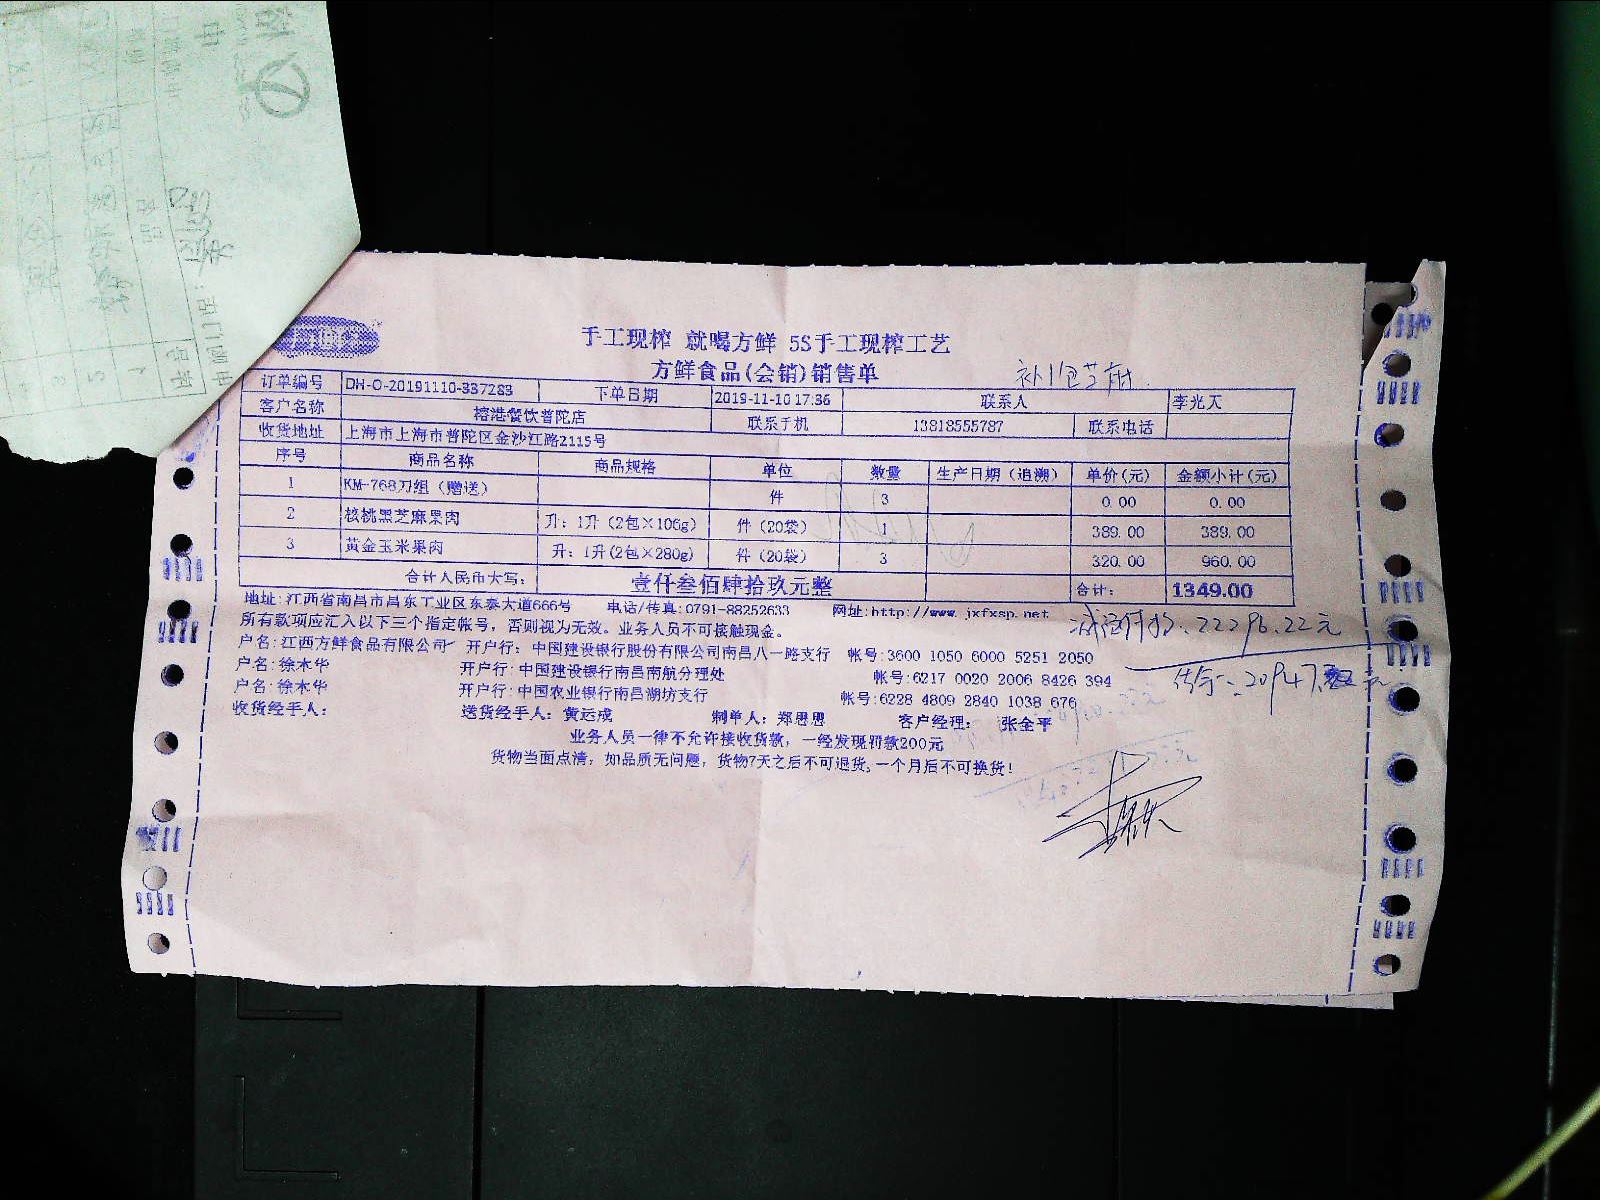 手工现榨 就喝方鲜 5S手工现榨工艺
方鲜食品(会销)销售单
补1包芝麻
订单编号 DH-O-20191110-337283 下单日期 2019-11-10 17:36 联系人 李光天
客户名称 榕港餐饮普陀店 联系手机 13818555787 联系电话
收货地址 上海市上海市普陀区金沙江路2115号
序号 商品名称 商品规格 单位 数量 生产日期（追溯） 单价(元) 金额小计(元)
1 KM-768刀组（赠送） 件 3 0.00 0.00
2 核桃黑芝麻果肉 升：1升（2包×106g） 件（20袋） 1 389.00 389.00
3 黄金玉米果肉 升：1升(2包×280g) 件（20袋） 3 320.00 960.00
合计人民币大写： 壹仟叁佰肆拾玖元整 合计： 1349.00
地址：江西省南昌市昌东工业区东泰大道666号 电话/传真：0791-88252633 网址：http://www.jxfxsp.net
所有款项应汇入以下三个指定帐号，否则视为无效。业务人员不可接触现金。
22296.22元
户名：江西方鲜食品有限公司 开户行：中国建设银行股份有限公司南昌八一路支行 帐号：3600 1050 6000 5251 2050
户名：徐木华 开户行：中国建设银行南昌南航分理处 帐号：6217 0020 2006 8426 394
户名：徐木华 开户行：中国农业银行南昌湖坊支行 帐号：6228 4809 2840 1038 676
收货经手人： 送货经手人：黄运成 制单人：郑恩恩 客户经理： 张全平
业务人员一律不允许接收货款，一经发现罚款200元
货物当面点清，如品质无问题，货物7天之后不可退货，一个月后不可换货！